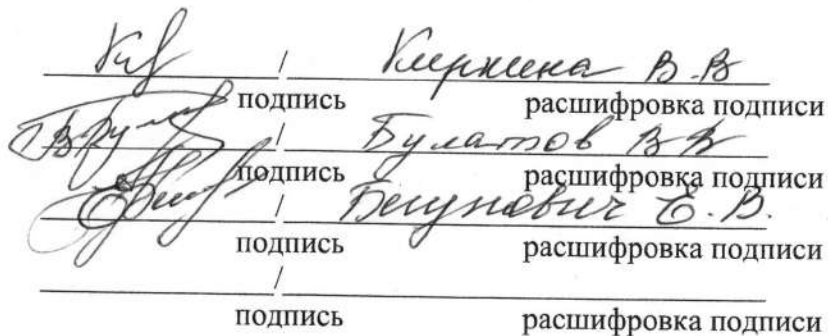 / В.В
подпись расшифровка подписи
/ Булатов В В
подпись расшифровка подписи
/ Бегунович Е.В.
подпись расшифровка подписи
/
подпись расшифровка подписи